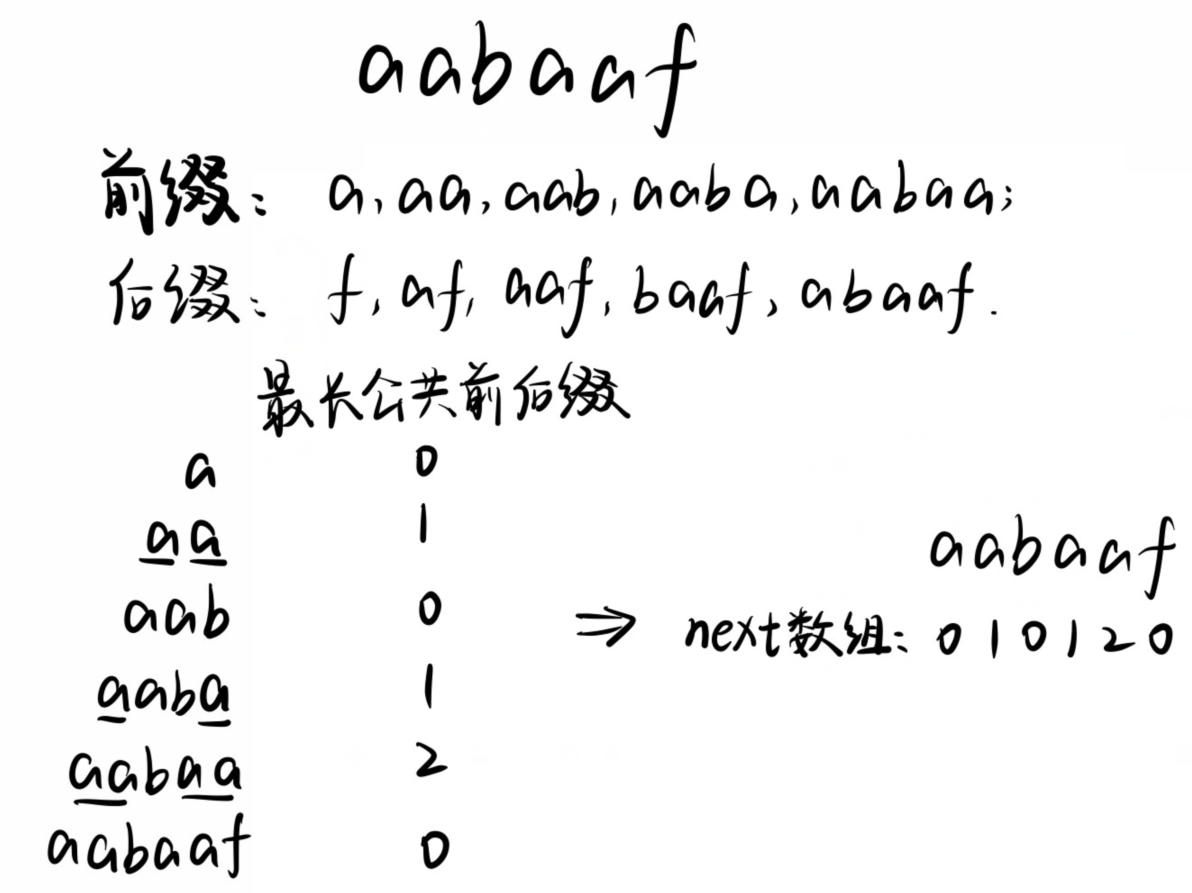 aabaaf
前缀: a, aa, aab, aaba, aabaa;
后缀: f, af, aaf, baaf, abaaf.
最长公共前后缀
a 0
aa 1
aab 0
aaba 1
aabaa 2
aabaaf 0
aabaaf
⇒ next数组: 0 1 0 1 2 0